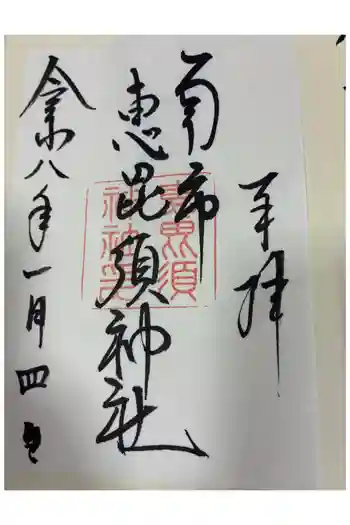 奉拝
南市
恵毘須神社
令和八年一月四日
恵毘須